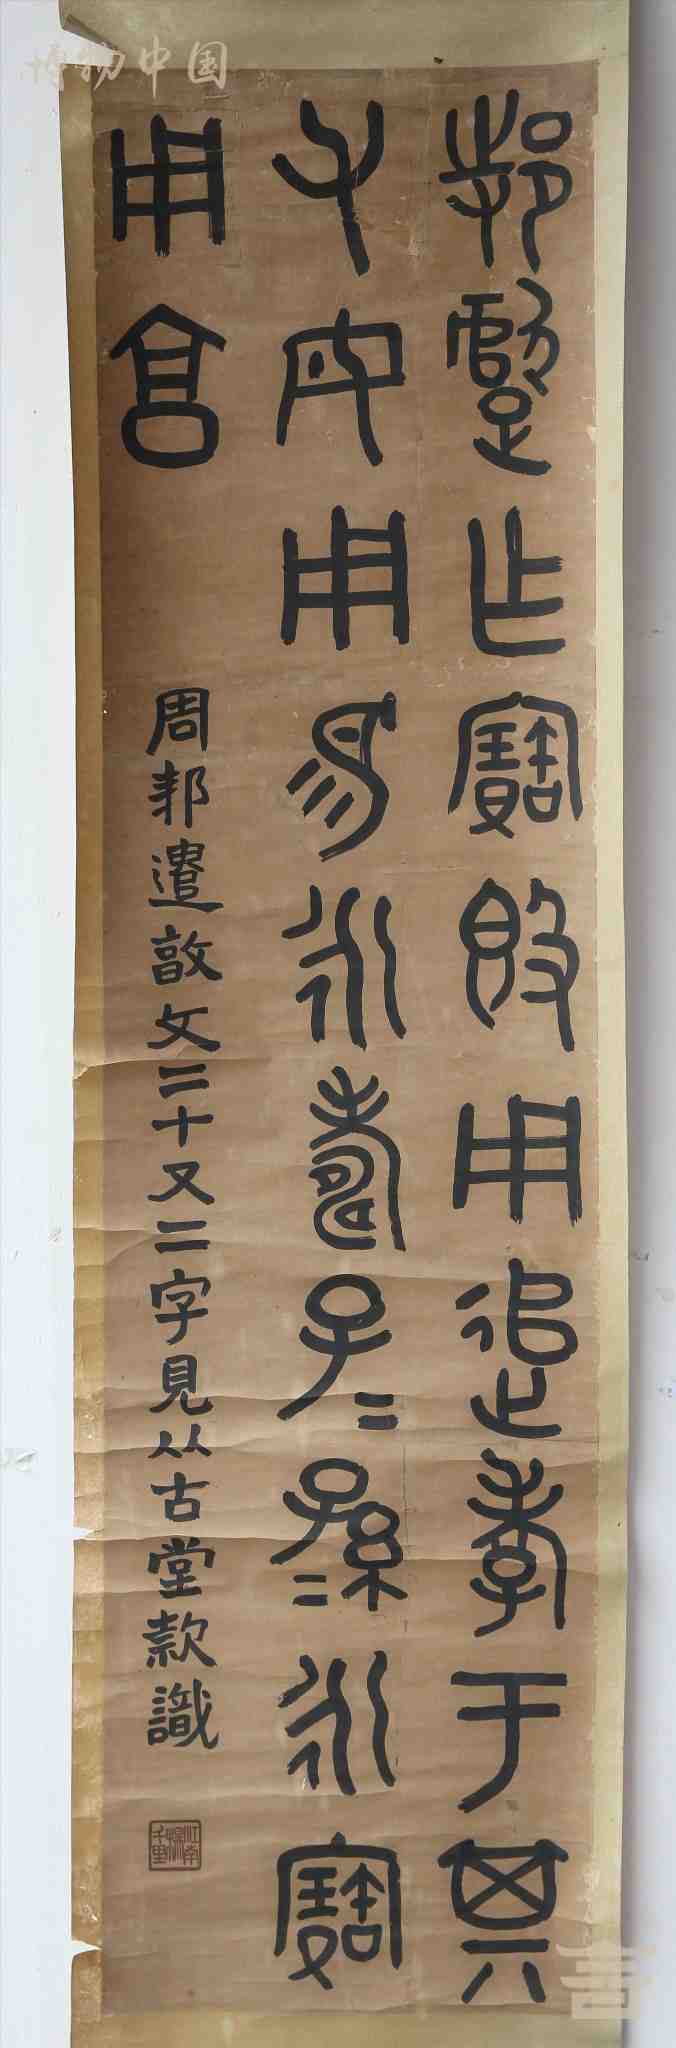 博物中国
邿遣乍寶𣪘用追孝于其
父母用易永壽子二孫二永寶
用亯
周邦遣敦文二十又二字見从古堂款識